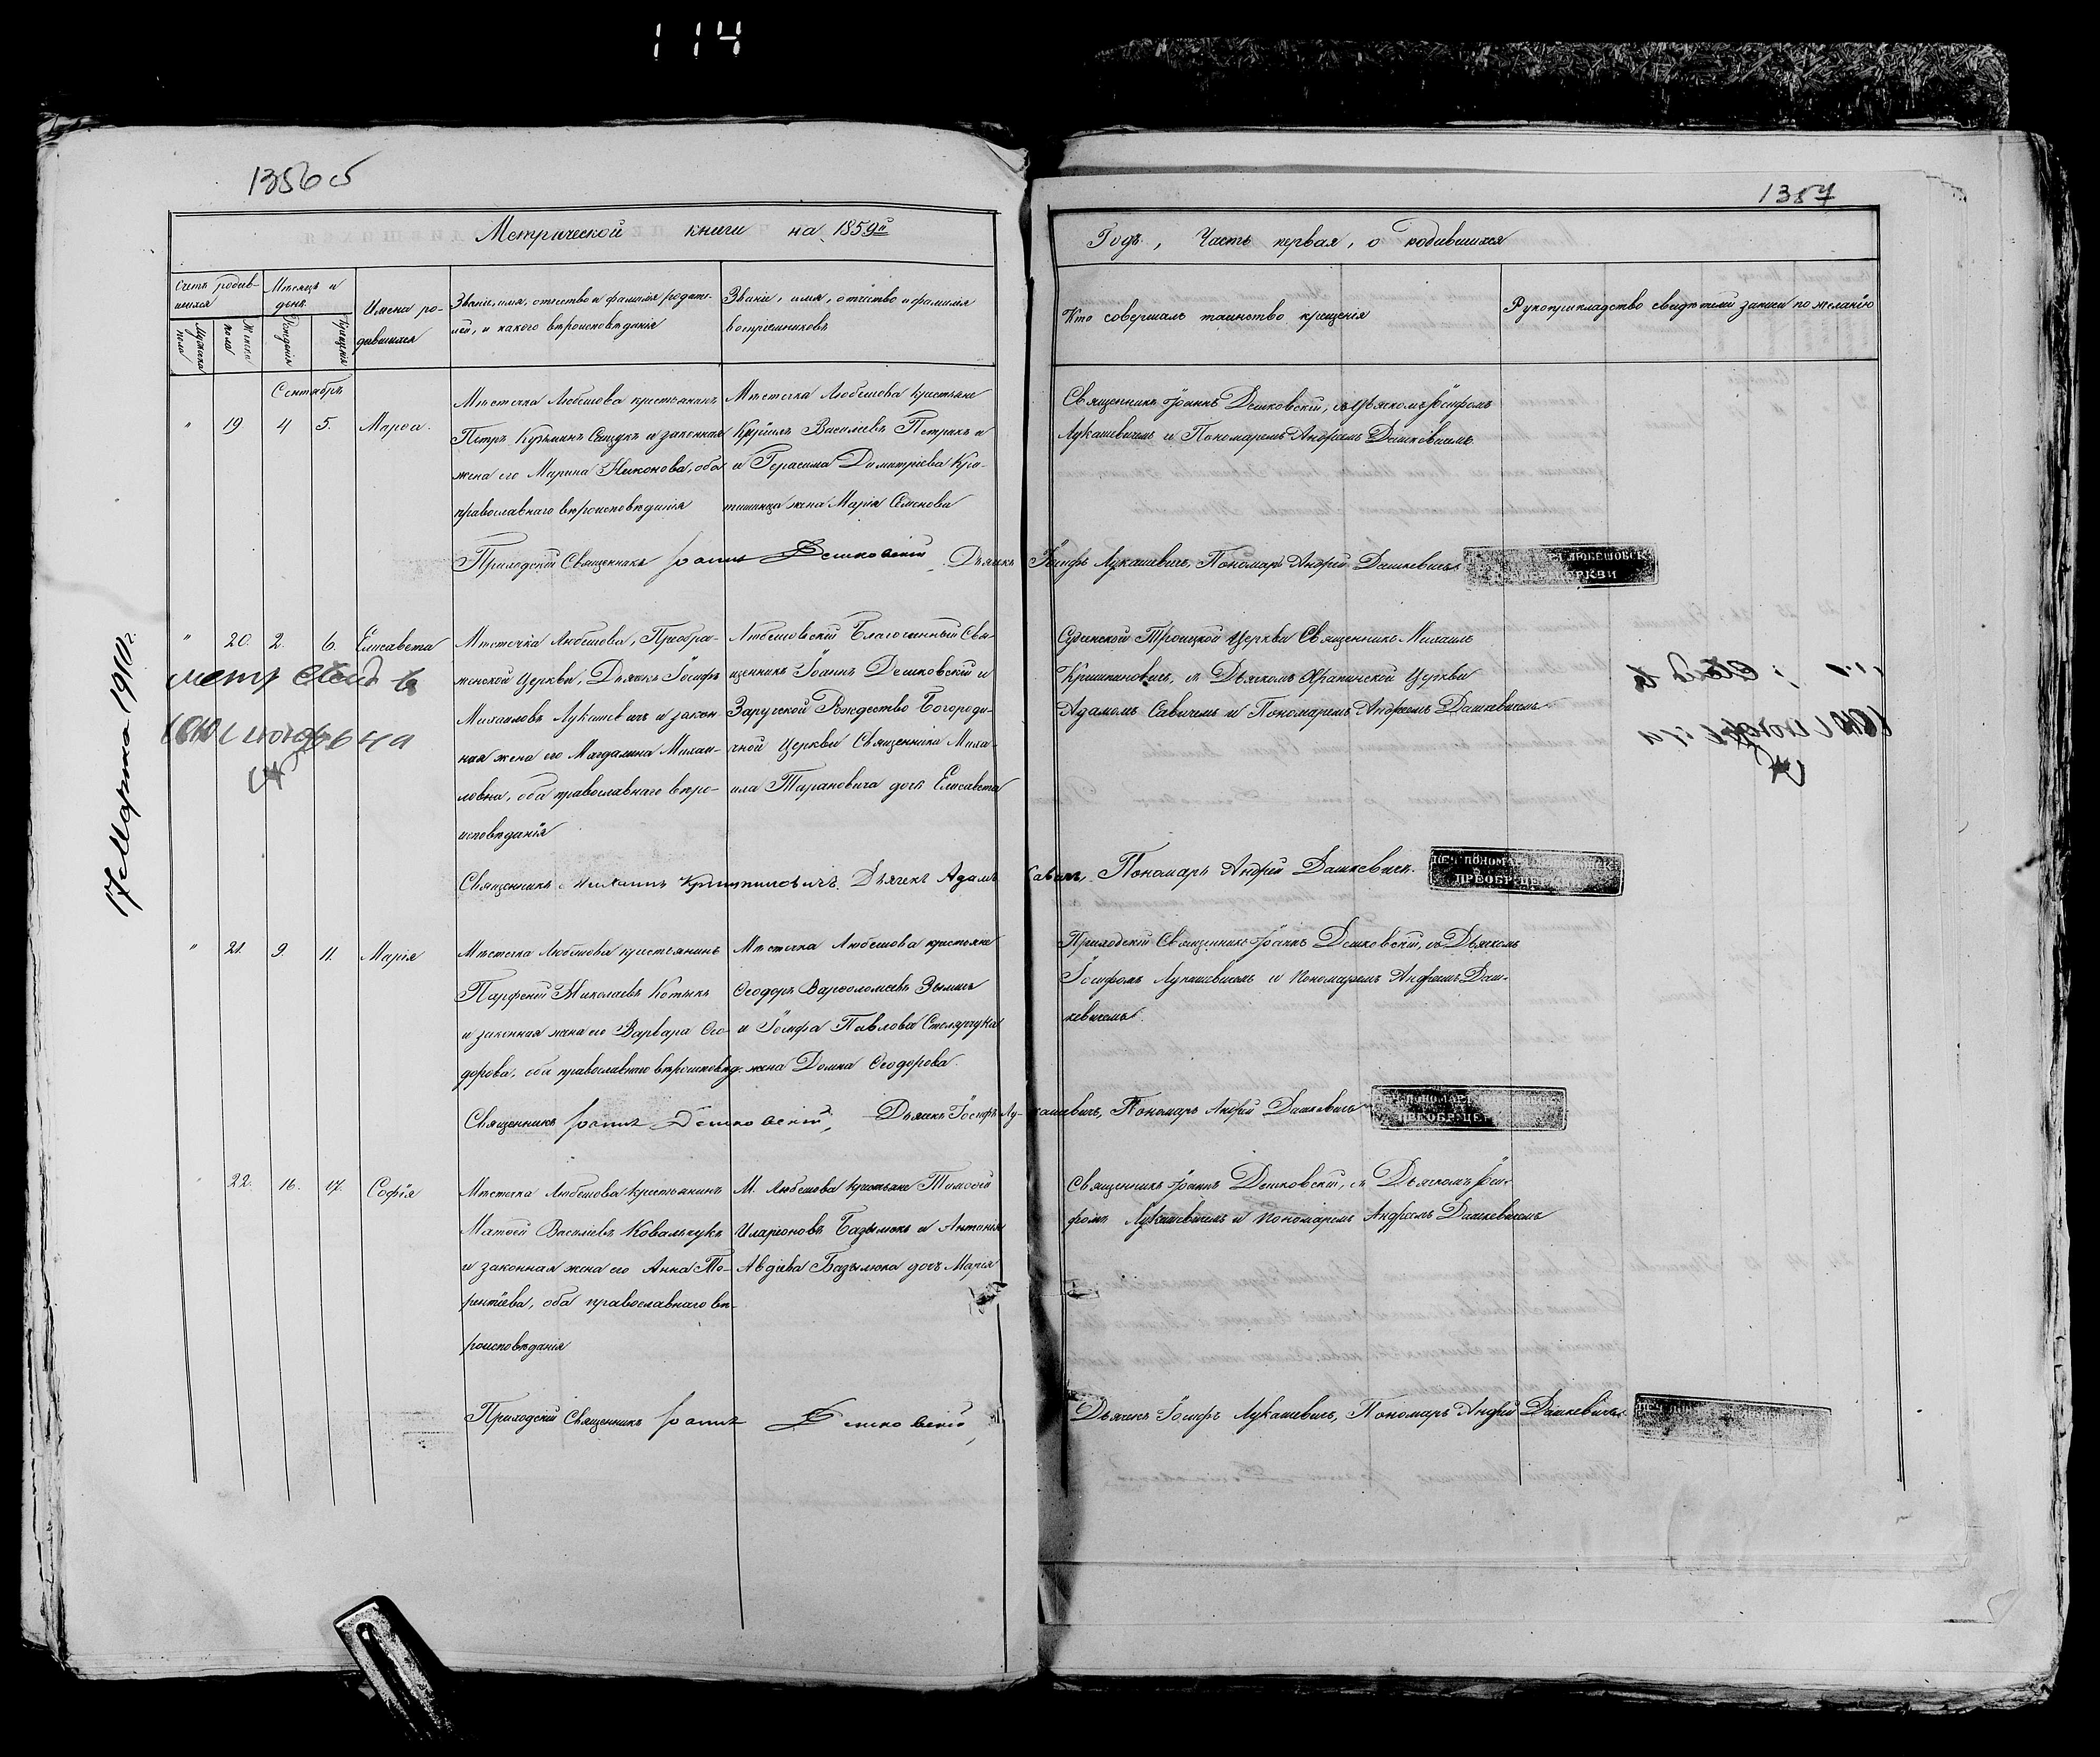 114
1356
1357
Метрической книги на 1859й
Годъ, Часть первая, о родившихся
Счетъ родив-
шихся
Мѣсяцъ и
день
Имена ро-
дившихся
Званіе, имя, отчество и фамилія родите-
лей, и какого вѣроисповѣданія
Званіе, имя, отчество и фамилія
воспріемниковъ
Кто совершалъ таинство крещенія
Рукоприкладство свидѣтелей записи по желанію
Мужеска
пола
Женска
пола
Рожденія
Крещенія
Сентябрь
" 19 4 5. Марѳа.
Мѣстечка Любешова крестьянинъ
Петръ Кузьминъ и законная
жена его Марина Никонова, оба
православнаго вѣроисповѣданія
Мѣстечка Любешова крестьяне
Василіевъ Петрикъ и
и Герасима Димитріева Кро-
жена Марія Семенова
Священникъ Іоаннъ Дешковскій, съ Дьячкомъ Іосифомъ
Лукашевичемъ и Пономаремъ Андреемъ Дашкевичемъ
Приходскій Священникъ Іоаннъ Дешковскій, Дьячекъ Іосифъ Лукашевичъ, Пономарь Андрей Дашкевичъ
ЛЮБЕШОВСК.
" 20. 2. 6. Елисавета
Мѣстечка Любешова, Преобра-
женской Церкви, Дьячекъ Іосифъ
Михаиловъ Лукашевичъ и закон-
ная жена его Магдалина Михаи-
ловна, оба православнаго вѣро-
исповѣданія
Любешовскій Благочинный Свя-
щенникъ Іоаннъ Дешковскій и
Заруцкой Рождество Богороди-
чной Церкви Священника Миха-
ила Тарановича дочь Елисавета
Троицкой Церкви Священникъ Михаилъ
съ Дьячкомъ Церкви
Адамомъ Савичемъ и Пономаремъ Андреемъ Дашкевичемъ
17 Марта 1910 г.
Священникъ Михаилъ Дьячекъ Адамъ Савичъ, Пономарь Андрей Дашкевичъ.
ПЕЧ. ПОНОМАРЯ
ПРЕОБР. ЦЕРКВИ
" 21. 9. 11. Марія
Мѣстечка Любешова крестьянинъ
Парфеній Николаевъ Котыкъ
и законная жена его Варвара Ѳео-
дорова, оба православнаго вѣроисповѣд.
Мѣстечка Любешова крестьяне
Ѳеодоръ Варѳоломеевъ
и Іосифа Павлова Столярчука
жена Домна Ѳеодорова.
Приходскій Священникъ Іоаннъ Дешковскій, съ Дьячкомъ
Іосифомъ Лукашевичемъ и Пономаремъ Андреемъ Даш-
кевичемъ.
Священникъ Іоаннъ Дешковскій, Дьячекъ Іосифъ Лу-кашевичъ, Пономарь Андрей Дашкевичъ
ПЕЧ. ПОНОМАРЯ
ПРЕОБР. ЦЕР
22. 16. 17. Софія
Мѣстечка Любешова крестьянинъ
Матѳей Василіевъ Ковальчукъ
и законная жена его Анна Те-
рентіева, оба православнаго вѣ-
роисповѣданія
М. Любешова крестьяне Тимоѳей
Иларіоновъ Базылюкъ и Антонія
Авдіева Базылюка дочь Марія
Священникъ Іоаннъ Дешковскій, съ Дьячкомъ Іоси-
фомъ Лукашевичемъ и Пономаремъ Андреемъ Дашкевичемъ
Приходскій Священникъ Іоаннъ Дешковскій,
Дьячекъ Іосифъ Лукашевичъ, Пономарь Андрей Дашкевичъ.